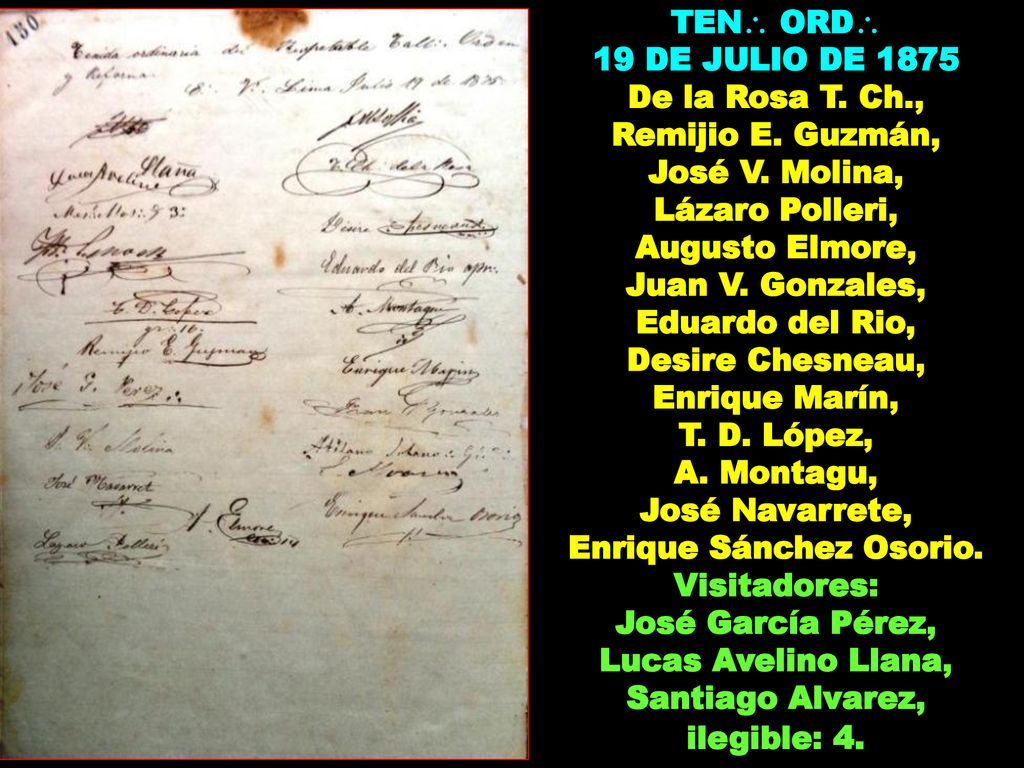 150
Tenida ordinaria del Respetable Tall∴ Orden
y Reforma
E∴ V∴ Lima Julio 19 de 1875
Lucas Avelino Llaña
T. Ch. de la Rosa
Desire Chesneau
Eduardo del Rio apr∴
T. D. Lopez
A. Montagu
Remijio E. Guzman
Enrique Marin
José G. Perez∴
Juan V Gonzales
J. V. Molina
José Navarrete
A. Elmore
Enrique Sanchez Osorio
Lazaro Polleri
TEN∴ ORD∴
19 DE JULIO DE 1875
De la Rosa T. Ch.,
Remijio E. Guzmán,
José V. Molina,
Lázaro Polleri,
Augusto Elmore,
Juan V. Gonzales,
Eduardo del Rio,
Desire Chesneau,
Enrique Marín,
T. D. López,
A. Montagu,
José Navarrete,
Enrique Sánchez Osorio.
Visitadores:
José García Pérez,
Lucas Avelino Llana,
Santiago Alvarez,
ilegible: 4.